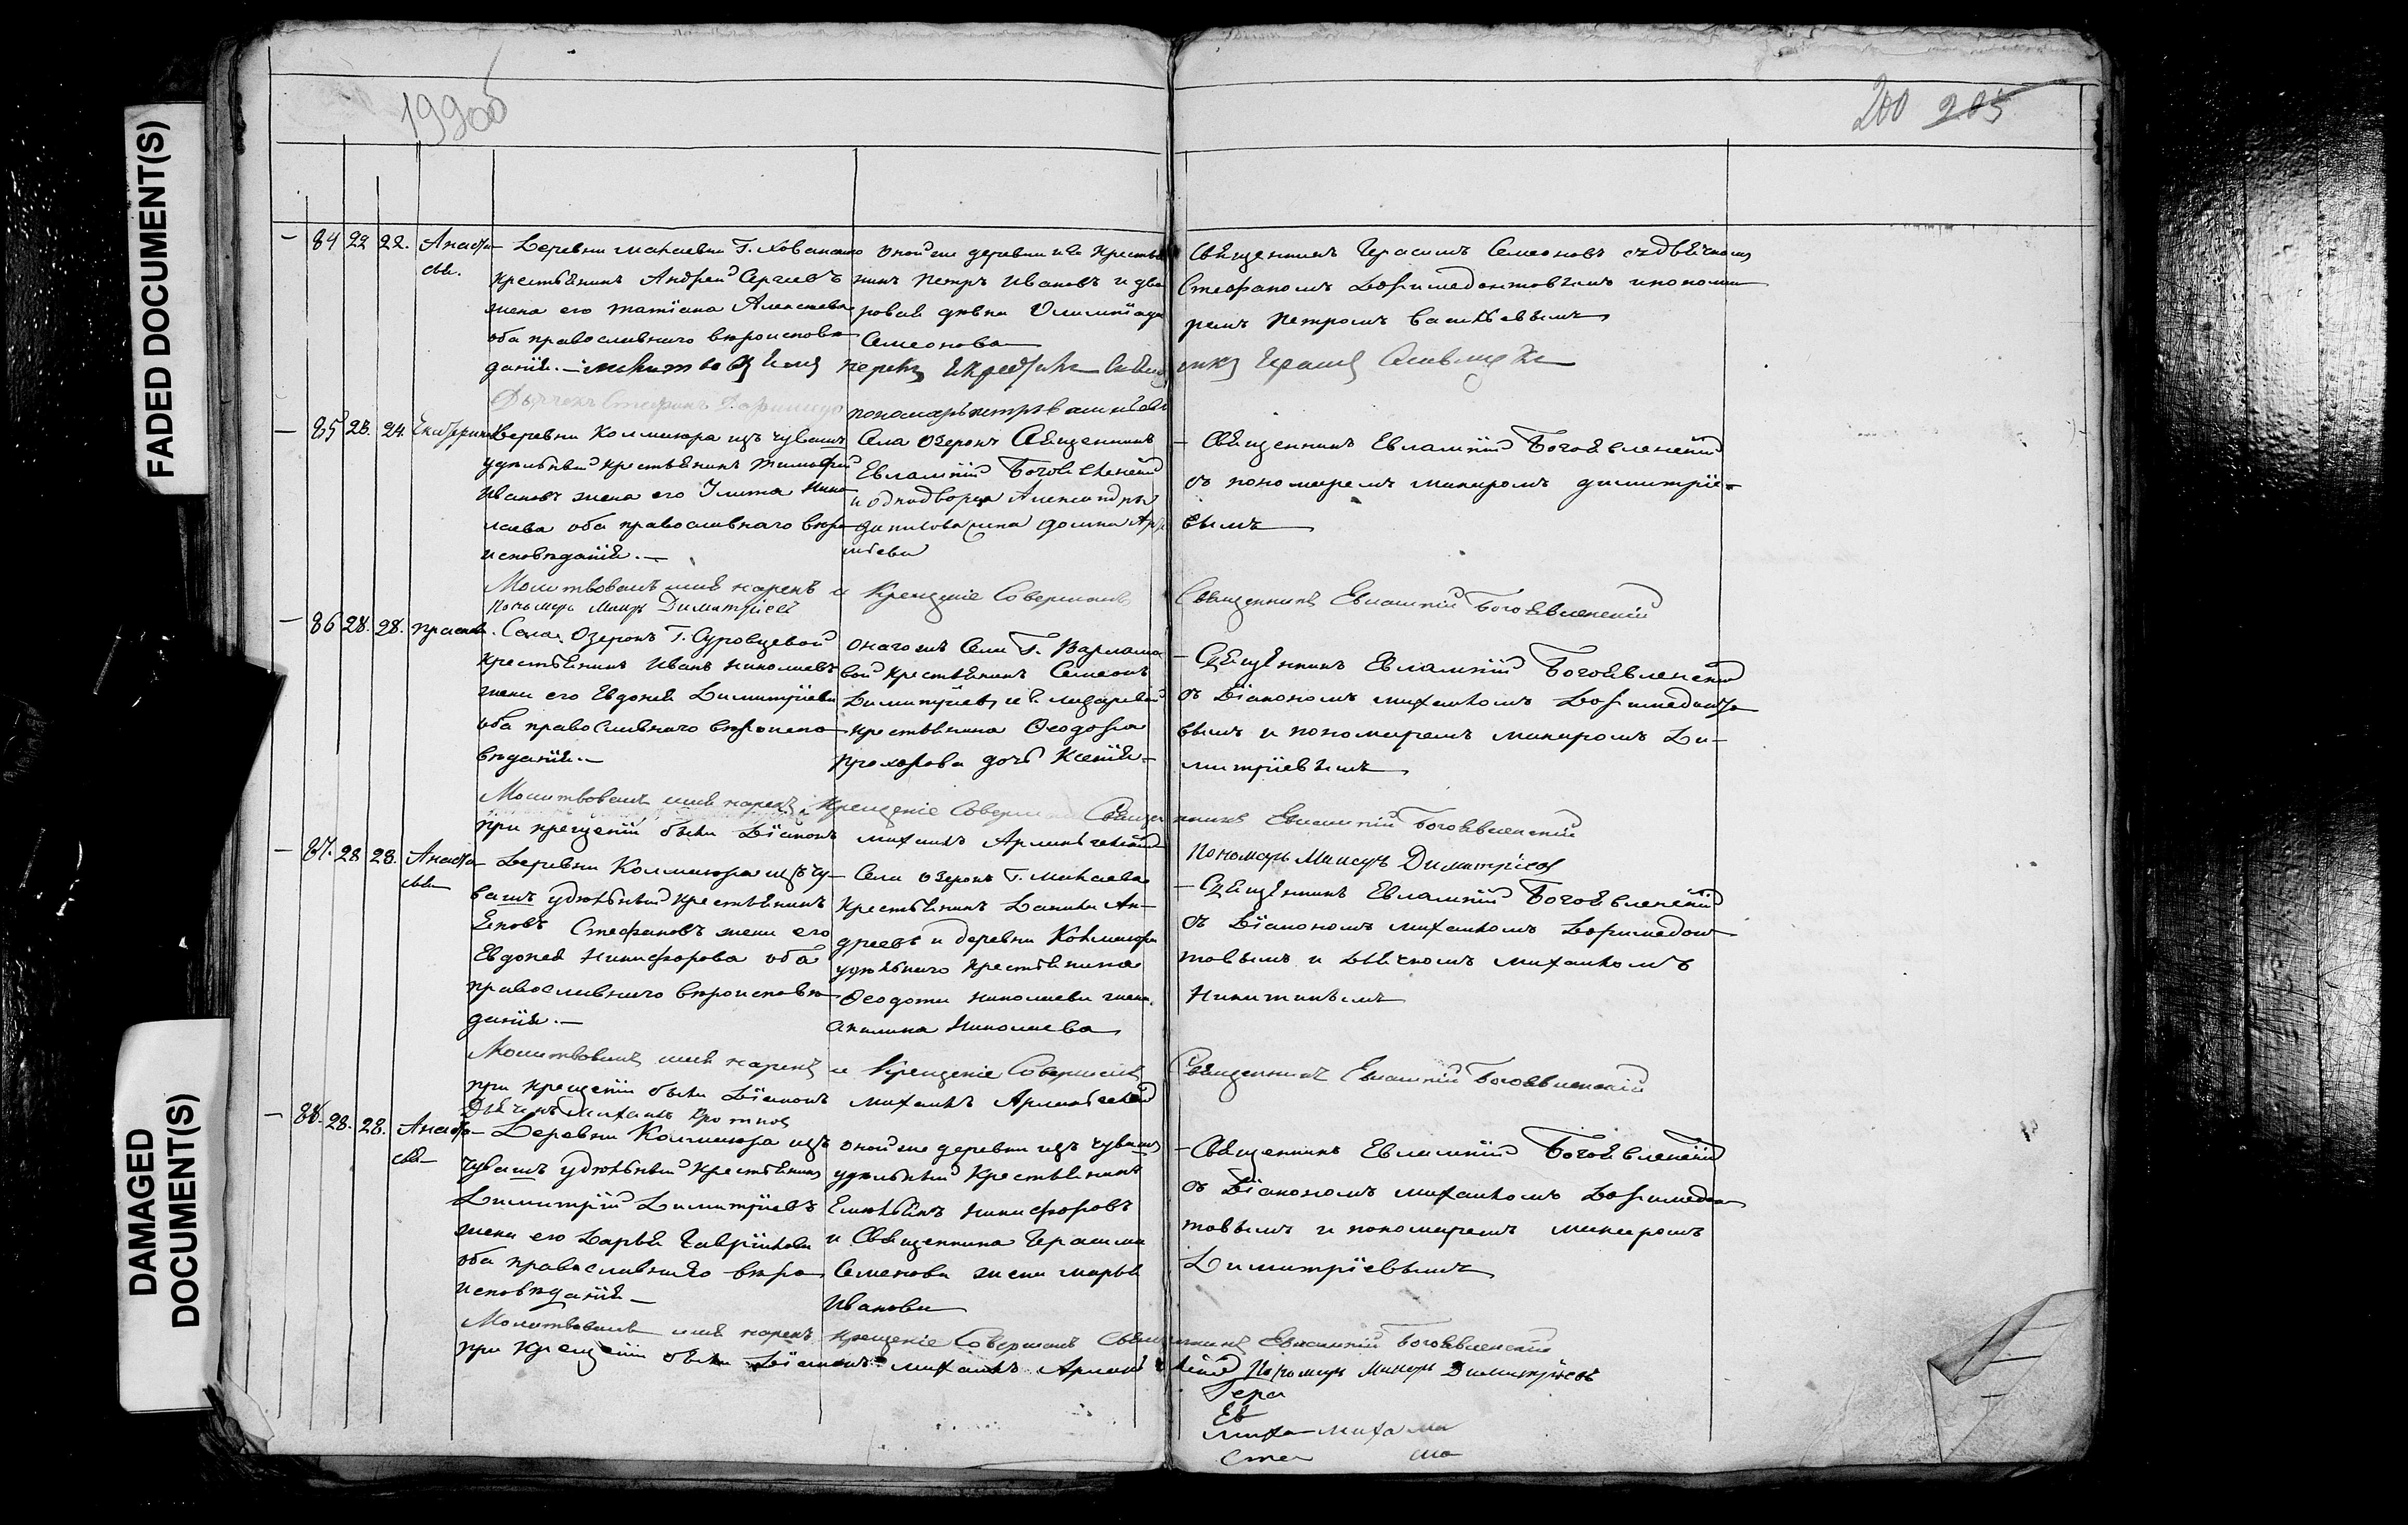 FADED DOCUMENT(S)
DAMAGED
DOCUMENT(S)
199об
200 205
— 84 22 22. Анаста-
сія.
Деревни Макаевки Г. Хованскаго
крестьянинъ Андрей Сергеевъ
жена его Татіана Алексеева
оба православнаго вѣроиспове
данія. —
оной же деревни кресть
нинъ Петръ Ивановъ и дво
ровая дѣвка Олимпіада
Семеонова
Священникъ Герасимъ Семеоновъ съ дьячкомъ
Стефаномъ Доримедонтовымъ и понома
ремъ Петромъ Васильевымъ
Дьячекъ Стефанъ
пономарь Петръ Васильевъ
— 85 23. 24. Екатерина
Деревни Колмаюра изъ чувашъ
удѣльный крестьянинъ Тимофей
Ивановъ жена его Улита Нико
лаева оба православнаго вѣро
исповѣданія. —
Села Озерокъ Священникъ
Евлампій Богоявленскій
и однодворца Александра
Данилова жена Домна
— Священникъ Евлампій Богоявленскій
съ пономаремъ Макаромъ Димитріе-
вымъ
Молитвовалъ имя нарекъ и Крещеніе Совершалъ Священникъ Евлампій Богоявленскій
Пономарь Макаръ Димитріевъ
— 86 28. 28. Праскев.
Села Озерокъ Г. Суровцевой
крестьянинъ Иванъ Николаевъ
жена его Евдокія Димитріева
оба православнаго вѣроиспо
вѣданія. —
онагожъ Села Г. Варлама
вой крестьянинъ Семеонъ
Димитріевъ и Г.
крестьянина Ѳеодора
Прохорова дочь Ксенія —
— Священникъ Евлампій Богоявленскій
съ Діакономъ Михаиломъ Доримедонто
вымъ и пономаремъ Макаромъ Ди-
митріевымъ
Молитвовалъ имя нарекъ Крещеніе Совершалъ Священникъ Евлампій Богоявленскій
при крещеніи былъ Діаконъ Михаилъ
Пономарь Макаръ Димитріевъ
— 87. 28 28. Анаста
сія —
Деревни Колмаюра изъ чу-
вашъ удѣльный крестьянинъ
Яковъ Стефановъ жена его
Евдокія Никифорова оба
православнаго вѣроисповѣ
данія. —
Села Озерокъ Г. Макаева
крестьянинъ Данила Ан-
дреевъ и деревни Колмаюра
удѣльнаго крестьянина
Ѳеодота Николаева жена
Акилина Николаева
— Священникъ Евлампій Богоявленскій
съ Діакономъ Михаиломъ Доримедон
товымъ и Дьячкомъ Михаиломъ
Никитинымъ
Молитвовалъ имя нарекъ и Крещеніе Совершалъ Священникъ Евлампій Богоявленскій
при крещеніи былъ Діаконъ Михаилъ
Дьячекъ Михаилъ
— 88. 28. 28. Анаста
сія —
Деревни Колмаюра изъ
чувашъ удѣльный крестьянинъ
Димитрій Димитріевъ
жена его Дарья Гаврилова
оба православнаго вѣро
исповѣданія —
оной же деревни изъ чувашъ
удѣльный крестьянинъ
Емельянъ Никифоровъ
и Священника Герасима
Семенова жена Марья
Иванова
— Священникъ Евлампій Богоявленскій
съ Діакономъ Михаиломъ Доримедон
товымъ и пономаремъ Макаромъ
Димитріевымъ
Молитвовалъ имя нарекъ крещеніе Совершалъ Священникъ Евлампій Богоявленскій
при Крещеніи былъ Діаконъ Михаилъ Пономарь Макаръ Димитріевъ
Гера
Ев
Миха Миха ма
Сте